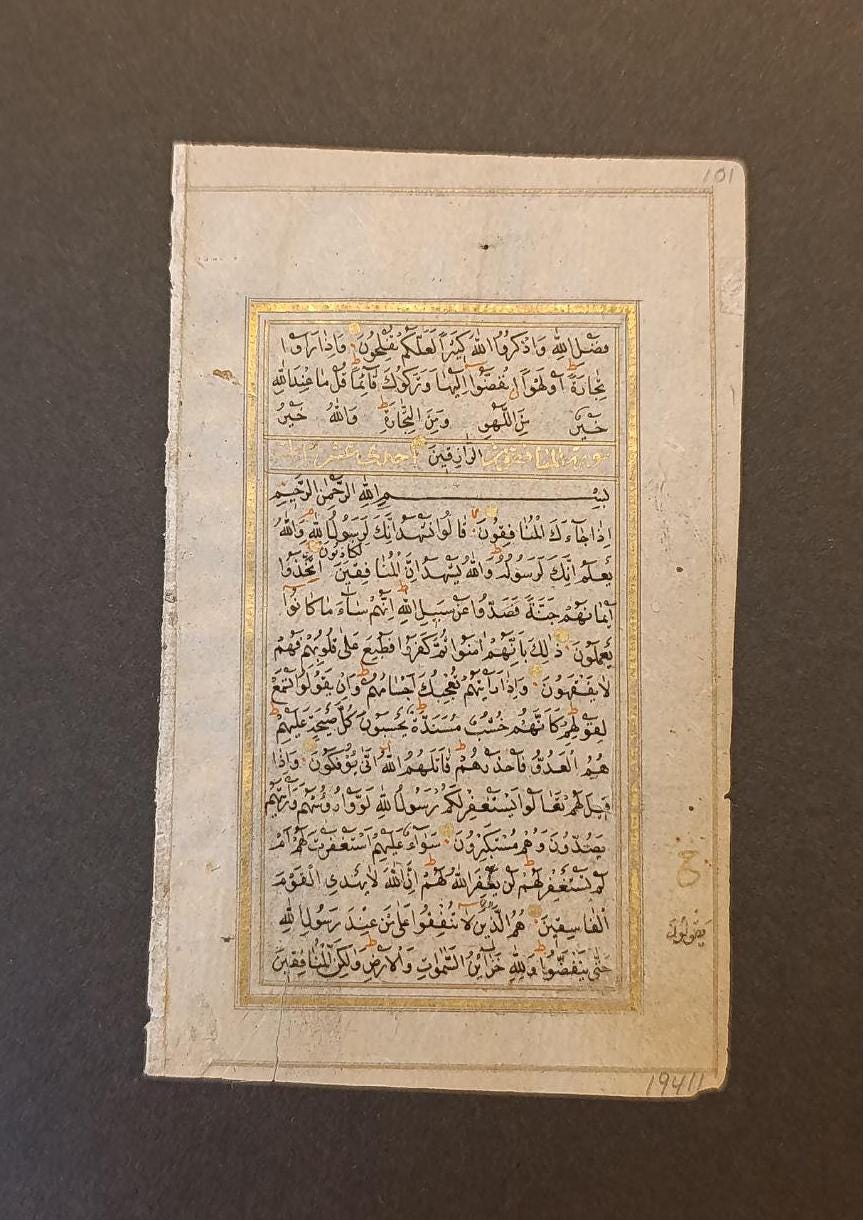 101
فَضْلِ اللهِ وَاذْكُرُوا اللهَ كَثِيرًا لَعَلَّكُمْ تُفْلِحُونَ وَاِذَا رَاَوْا
تِجَارَةً اَوْ لَهْوًا انْفَضُّوا اِلَيْهَا وَتَرَكُوكَ قَائِمًا قُلْ مَا عِنْدَ اللهِ
خَيْرٌ مِنَ اللَّهْوِ وَمِنَ التِّجَارَةِ وَاللهُ خَيْرُ
سورة المنافقون الرَّازِقِينَ احدى عشر
بِسْمِ اللهِ الرَّحْمٰنِ الرَّحِيمِ
اِذَا جَاءَكَ الْمُنَافِقُونَ قَالُوا نَشْهَدُ اِنَّكَ لَرَسُولُ اللهِ وَاللهُ
يَعْلَمُ اِنَّكَ لَرَسُولُهُ وَاللهُ يَشْهَدُ اِنَّ الْمُنَافِقِينَ لَكَاذِبُونَ اِتَّخَذُوا
اَيْمَانَهُمْ جُنَّةً فَصَدُّوا عَنْ سَبِيلِ اللهِ اِنَّهُمْ سَاءَ مَا كَانُوا
يَعْمَلُونَ ذٰلِكَ بِاَنَّهُمْ اٰمَنُوا ثُمَّ كَفَرُوا فَطُبِعَ عَلٰى قُلُوبِهِمْ فَهُمْ
لَا يَفْقَهُونَ وَاِذَا رَاَيْتَهُمْ تُعْجِبُكَ اَجْسَامُهُمْ وَاِنْ يَقُولُوا تَسْمَعْ
لِقَوْلِهِمْ كَاَنَّهُمْ خُشُبٌ مُسَنَّدَةٌ يَحْسَبُونَ كُلَّ صَيْحَةٍ عَلَيْهِمْ
هُمُ الْعَدُوُّ فَاحْذَرْهُمْ قَاتَلَهُمُ اللهُ اَنّٰى يُؤْفَكُونَ وَاِذَا
قِيلَ لَهُمْ تَعَالَوْا يَسْتَغْفِرْ لَكُمْ رَسُولُ اللهِ لَوَّوْا رُؤُسَهُمْ وَرَاَيْتَهُمْ
يَصُدُّونَ وَهُمْ مُسْتَكْبِرُونَ سَوَاءٌ عَلَيْهِمْ اَسْتَغْفَرْتَ لَهُمْ اَمْ
لَمْ تَسْتَغْفِرْ لَهُمْ لَنْ يَغْفِرَ اللهُ لَهُمْ اِنَّ اللهَ لَا يَهْدِي الْقَوْمَ
الْفَاسِقِينَ هُمُ الَّذِينَ لَا تُنْفِقُوا عَلٰى مَنْ عِنْدَ رَسُولِ اللهِ
حَتّٰى يَنْفَضُّوا وَلِلّٰهِ خَزَائِنُ السَّمٰوَاتِ وَالْاَرْضِ وَلٰكِنَّ الْمُنَافِقِينَ
ع
يقولون
19411